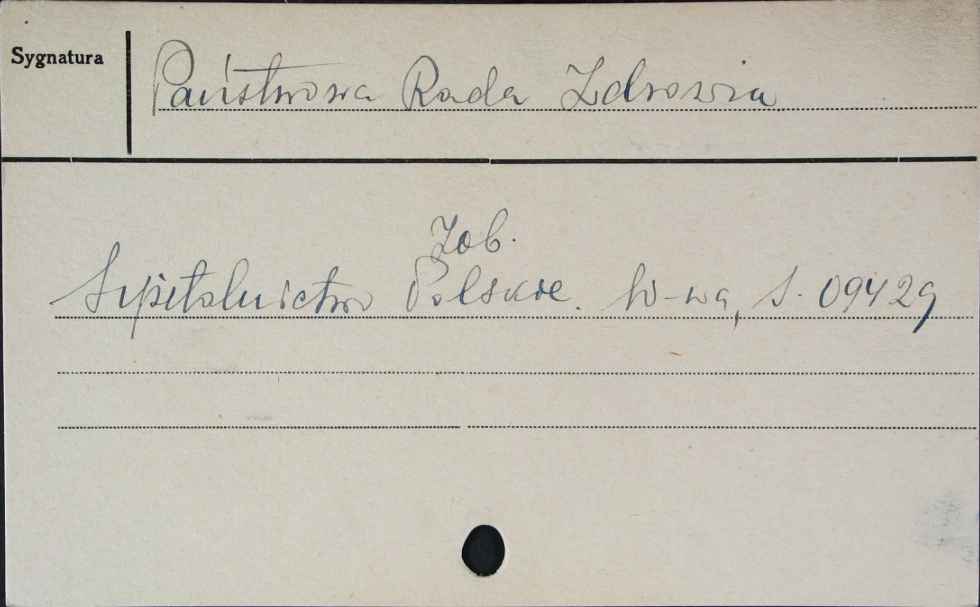 Sygnatura
Państwowa Rada Zdrowia
Zob.
Szpitalnictwo Polskie. W-wa, S. 09429